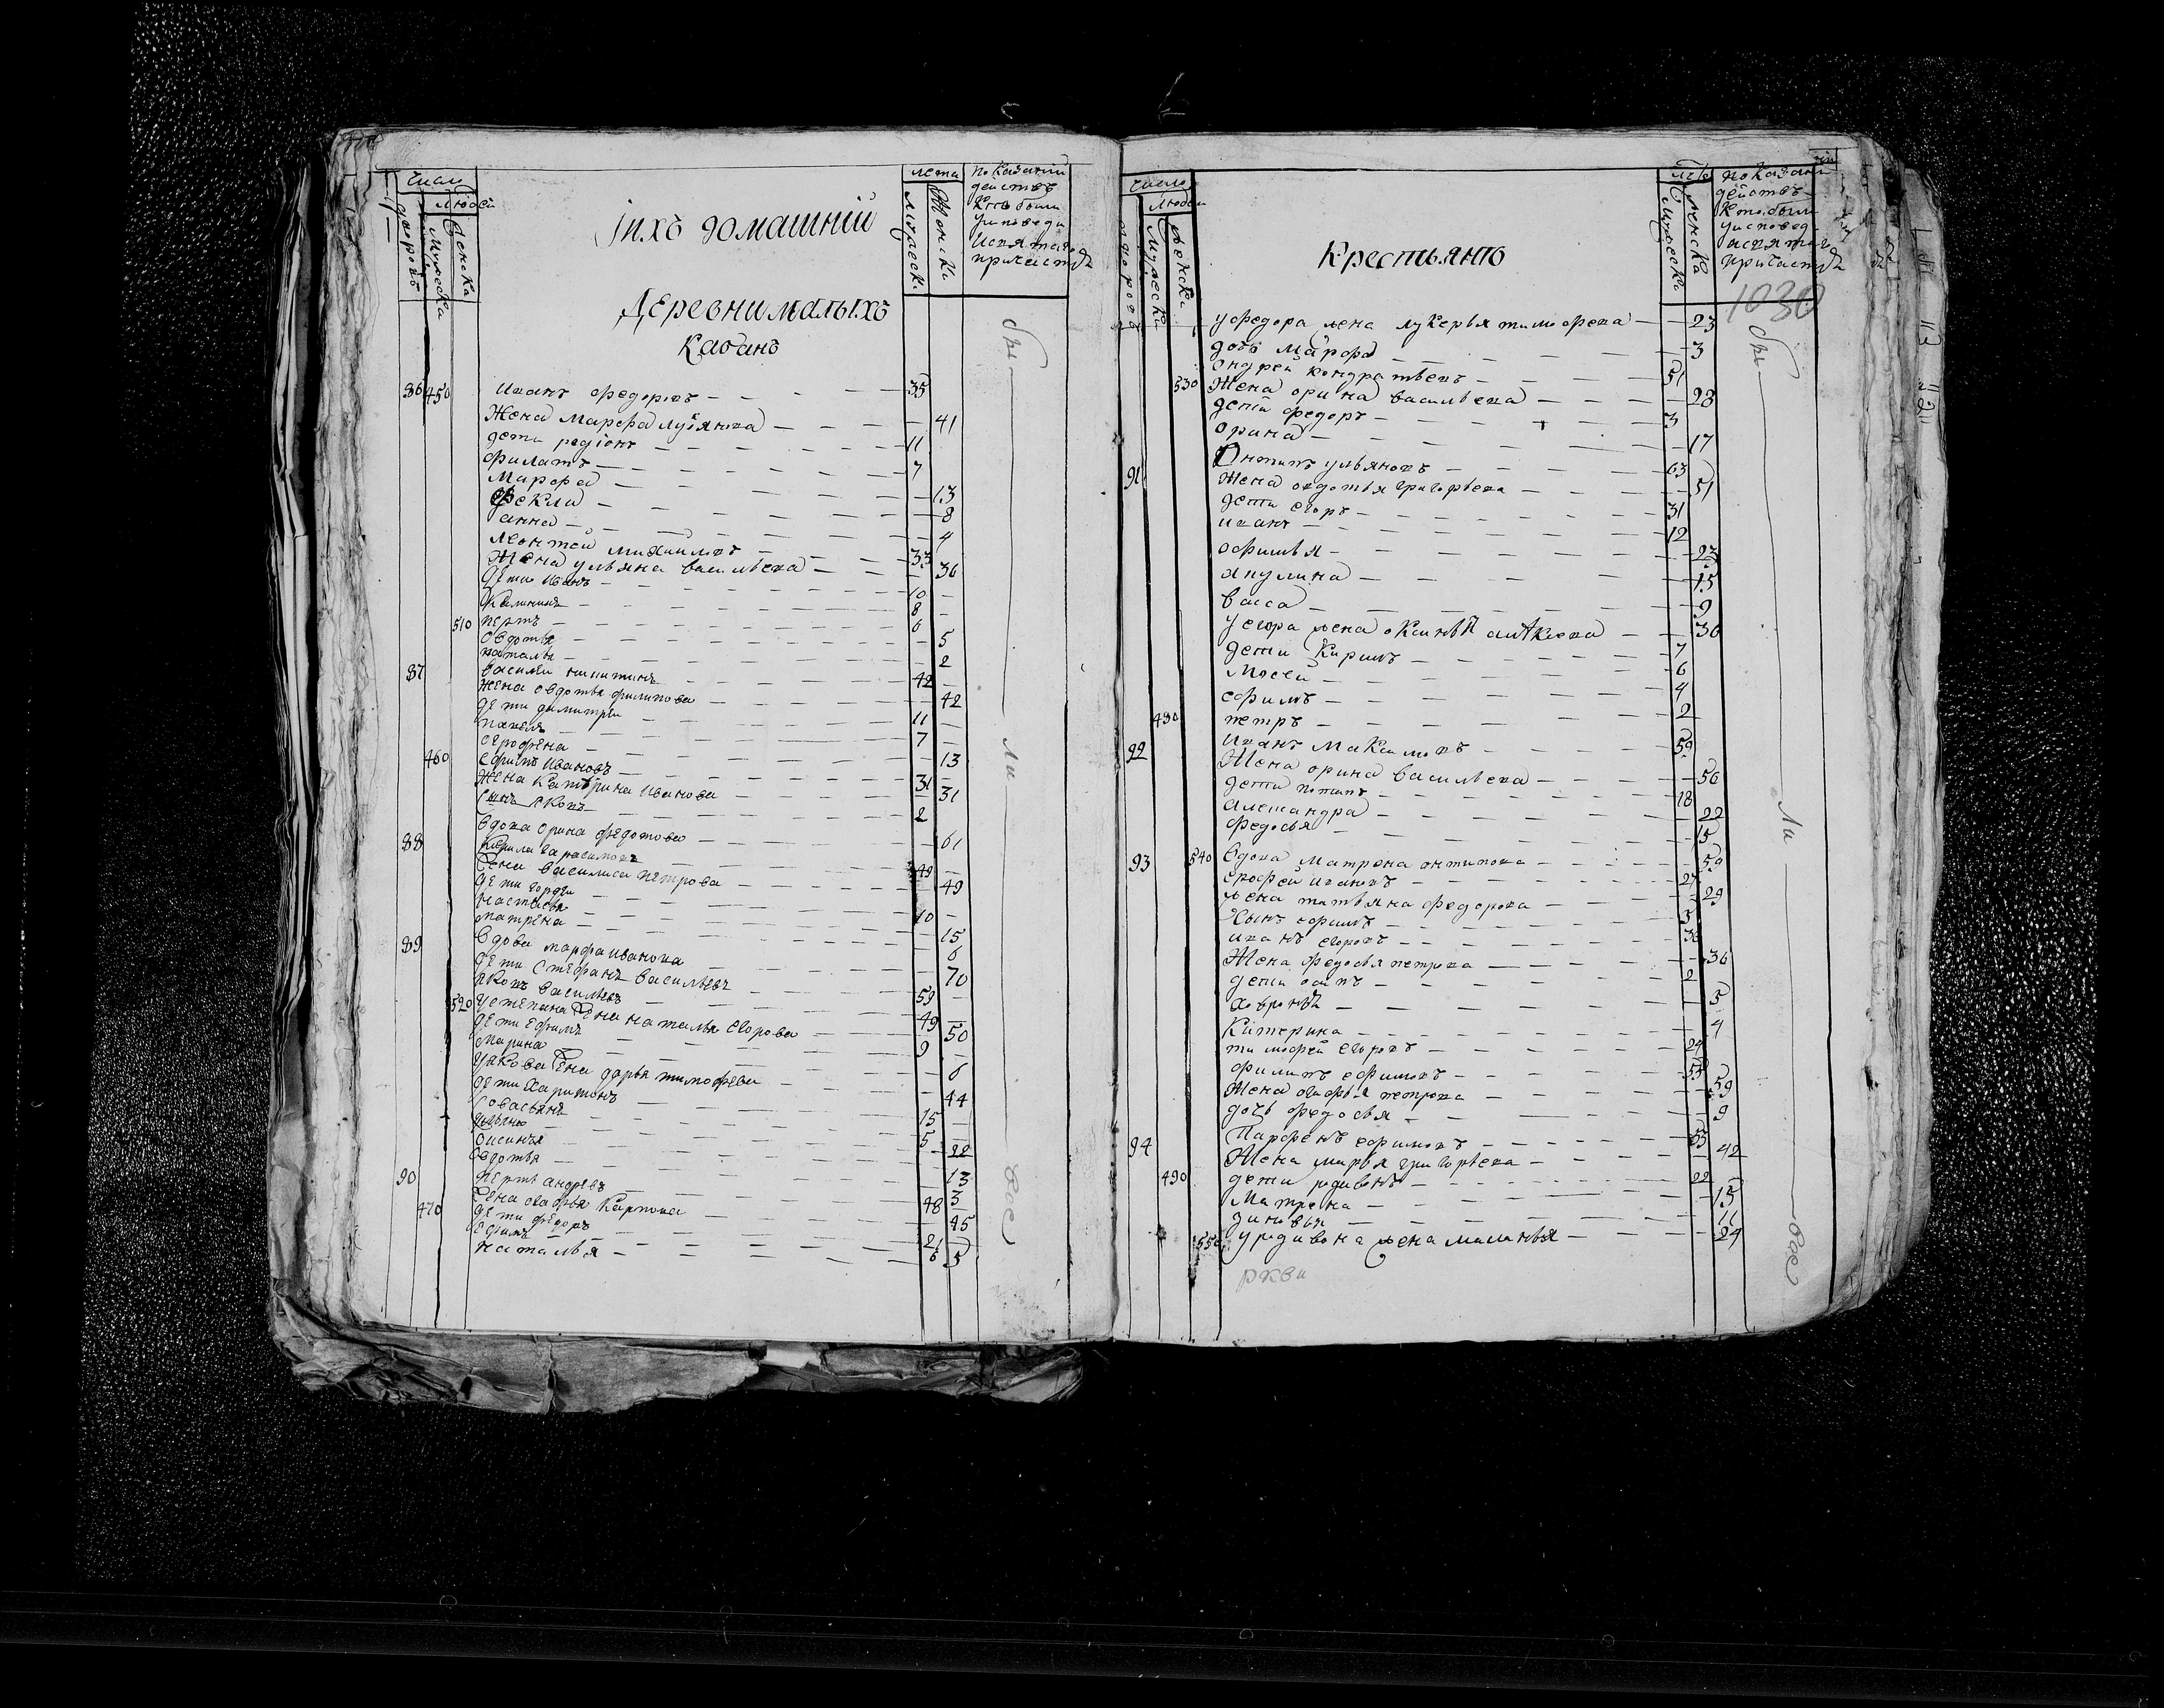 Число
людей
дворовъ
Мужеска
женска
Іихъ домашній
лета
Мужеска
Женска
показаніи
действъ
Кто были
уисповеди
Исвятаго
причастія
Деревни малыхъ
Кабанъ
86 450 Иванъ федоровъ 35
Жена Марфа лукіянова 41
дети родіонъ 11
филатъ 7
Марфа 13
Фекла 8
анна 4
леонтей михаиловъ 33
Жена ульяна васильева 36
дети Иванъ 10
Калинникъ 8
510 петръ 6
Овдотья 5
наталья 2
87 василеи никитинъ 42
жена овдотья филипова 42
дети димитреи 11
павелъ 7
серофена 13
460 ефимъ Ивановъ 31
жена Катерина Иванова 31
сынъ яковъ 2
вдова орина федотова 61
88 Кирила Гарасимовъ 49
жена василиса петрова 49
дети гордеи 10
настасья 15
матрена 6
89 вдова марфа иванова 70
дети Стефанъ васильевъ 59
яковъ васильевъ 49
520 устепана жена наталья егорова 50
дети ефимъ 9
марина 6
уякова жена дарья тимофеева 44
дети Харитонъ 15
Савастьянъ 5
ульяна 22
оксинья 13
овдотья 3
90 петръ андреевъ 48
жена агафья Карпова 45
470 дети федоръ 21
ефимъ 6
наталья 5
бы
ли
все
Число
людей
дворовъ
Мужеска
женска
Крестьянъ
лета
Мужеска
женска
показани
действъ
Кто были
уисповед
исвятаго
причастія
1030
уфедора жена лукерья тимофеева 23
дочь марфа 3
ондреи кондратьевъ 51
530 Жена орина васильева 28
дети федоръ 3
орина 17
91 Онтипъ ульяновъ 63
Жена овдотья григорьева 51
дети егоръ 31
иванъ 12
офимья 23
акулина 15
васса 9
уегора жена оксинья 30
дети Кирилъ 7
Мосеи 6
ефимъ 4
480 петръ 2
92 Иванъ Максимовъ 59
Жена орина васильева 56
дети потапъ 18
александра 22
федосья 15
93 540 вдова матрена онтипова 59
ерофеи ивановъ 27
жена татьяна федорова 29
сынъ ефимъ 5
иванъ егоровъ 36
Жена федосья петрова 36
дети осипъ 2
ховронья 5
Катерина 4
тимофеи егоровъ 24
филипъ ефимовъ 53
Жена агафья петрова 59
дочь федосья 9
94 Парфенъ ефимовъ 53
Жена марья григорьева 42
490 дети родивонъ 22
Матрена 15
зиновья 11
550 уродивона жена маланья 24
бы
ли
все
ркви